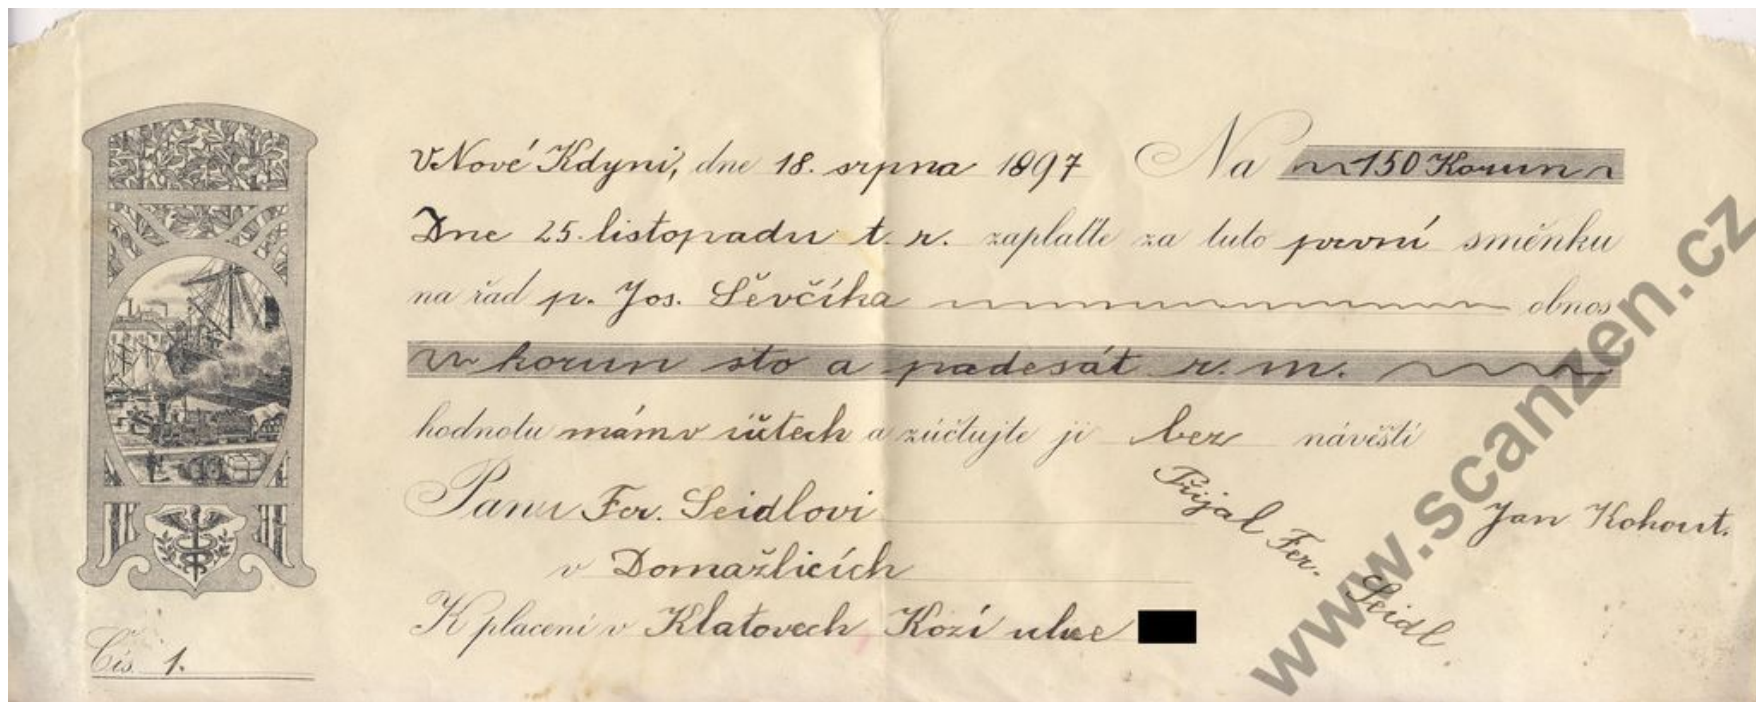 V Nové Kdyni, dne 18. srpna 1897 Na 150 Korun
Dne 25. listopadu t. r. zaplaťte za tuto první směnku
na řad p. Jos. Ševčíka obnos
korun sto a padesát r. m.
hodnotu mám v účtech a zúčtujte ji bez návěští
Panu Fer. Seidlovi
v Domažlicích
K placení v Klatovech Kozí ulice
Přijal Fer. Seidl.
Jan Kohout.
Čís. 1.
www.scanzen.cz